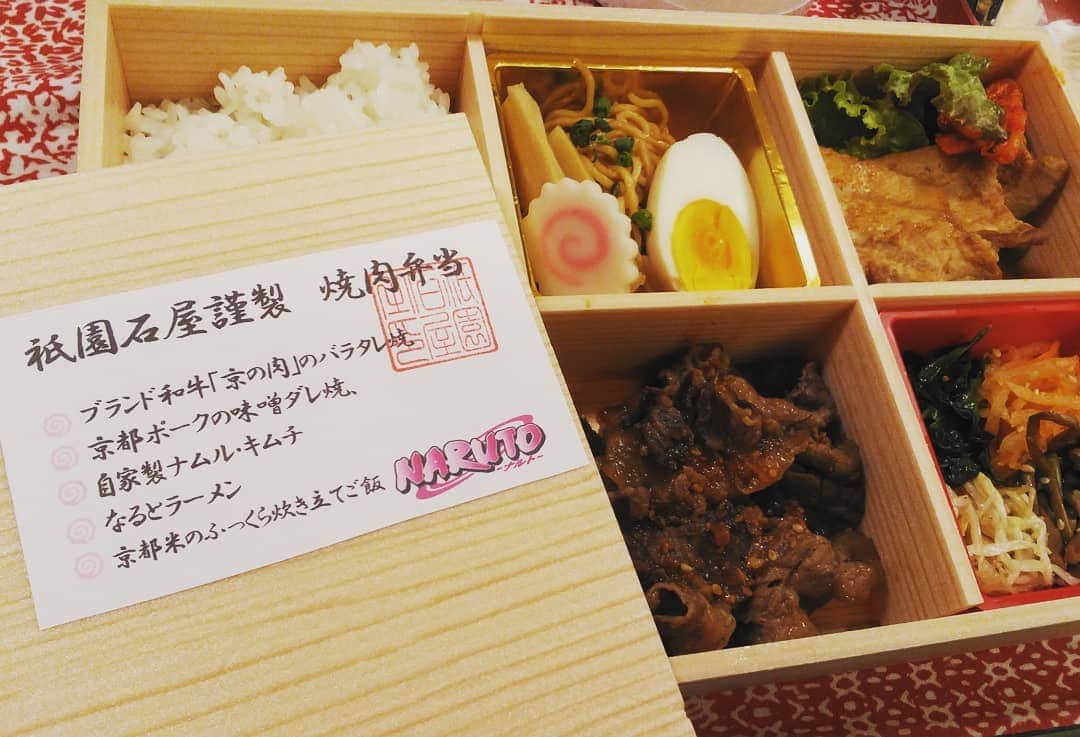 祇園石屋謹製 焼肉弁当
ブランド和牛「京の肉」のバラタレ焼
京都ポークの味噌ダレ焼、
自家製ナムル・キムチ
なるとラーメン
京都米のふっくら炊き立てご飯
NARUTO
ーナルトー